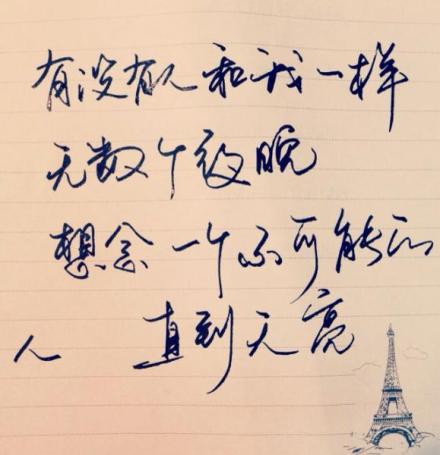 有没有人和我一样
无数个夜晚
想念一个不可能的
人 直到天亮